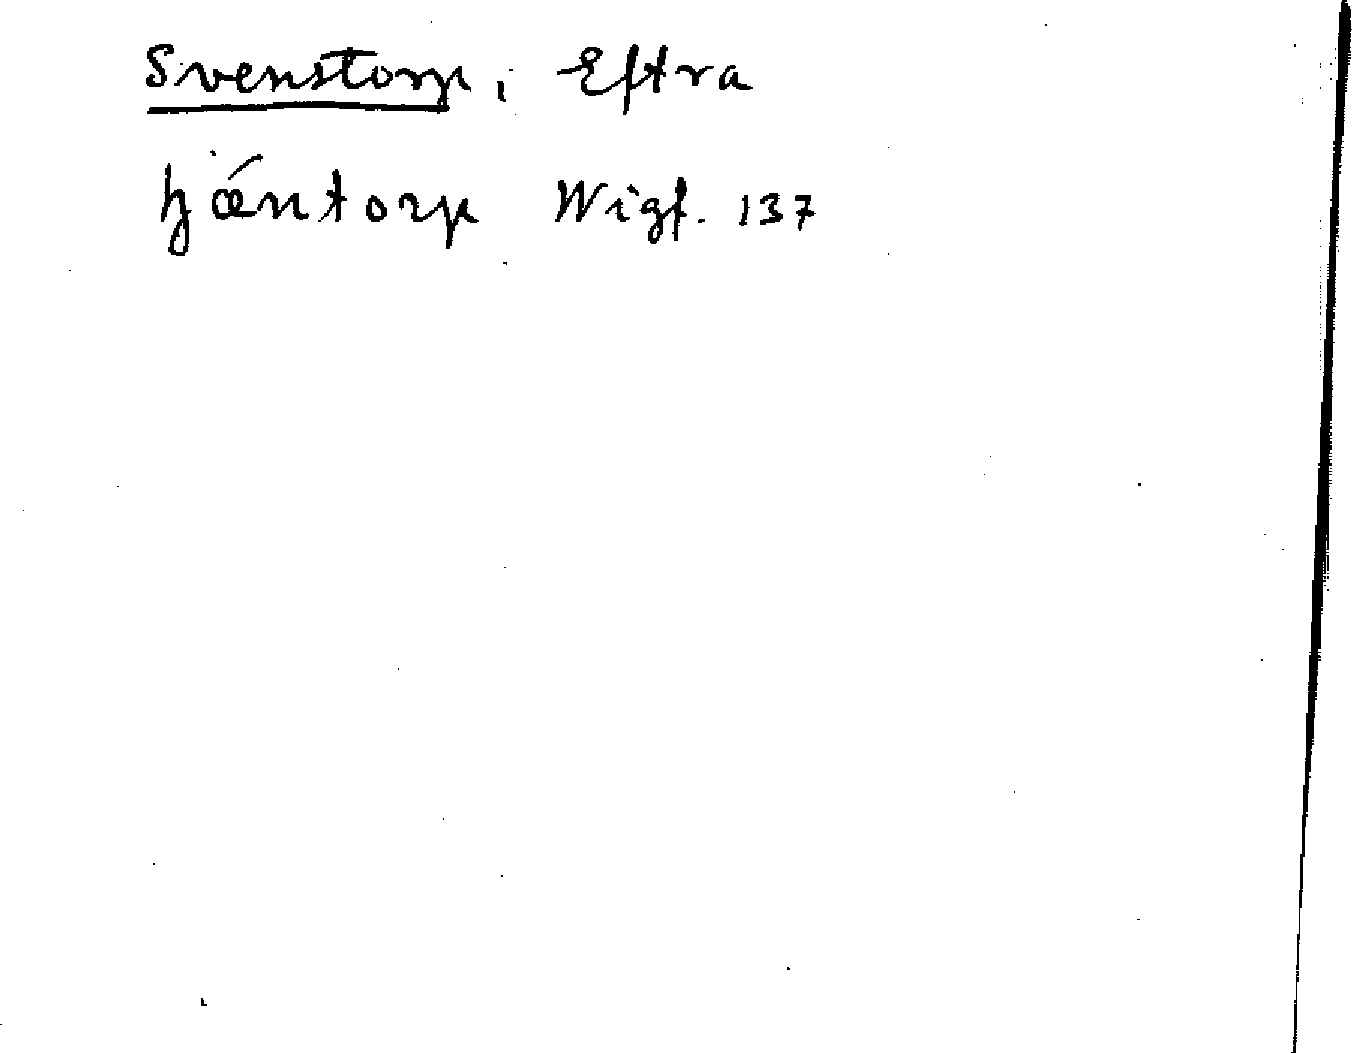 Svenstorp, Eftra
ɧǽntorp Wigf. 137